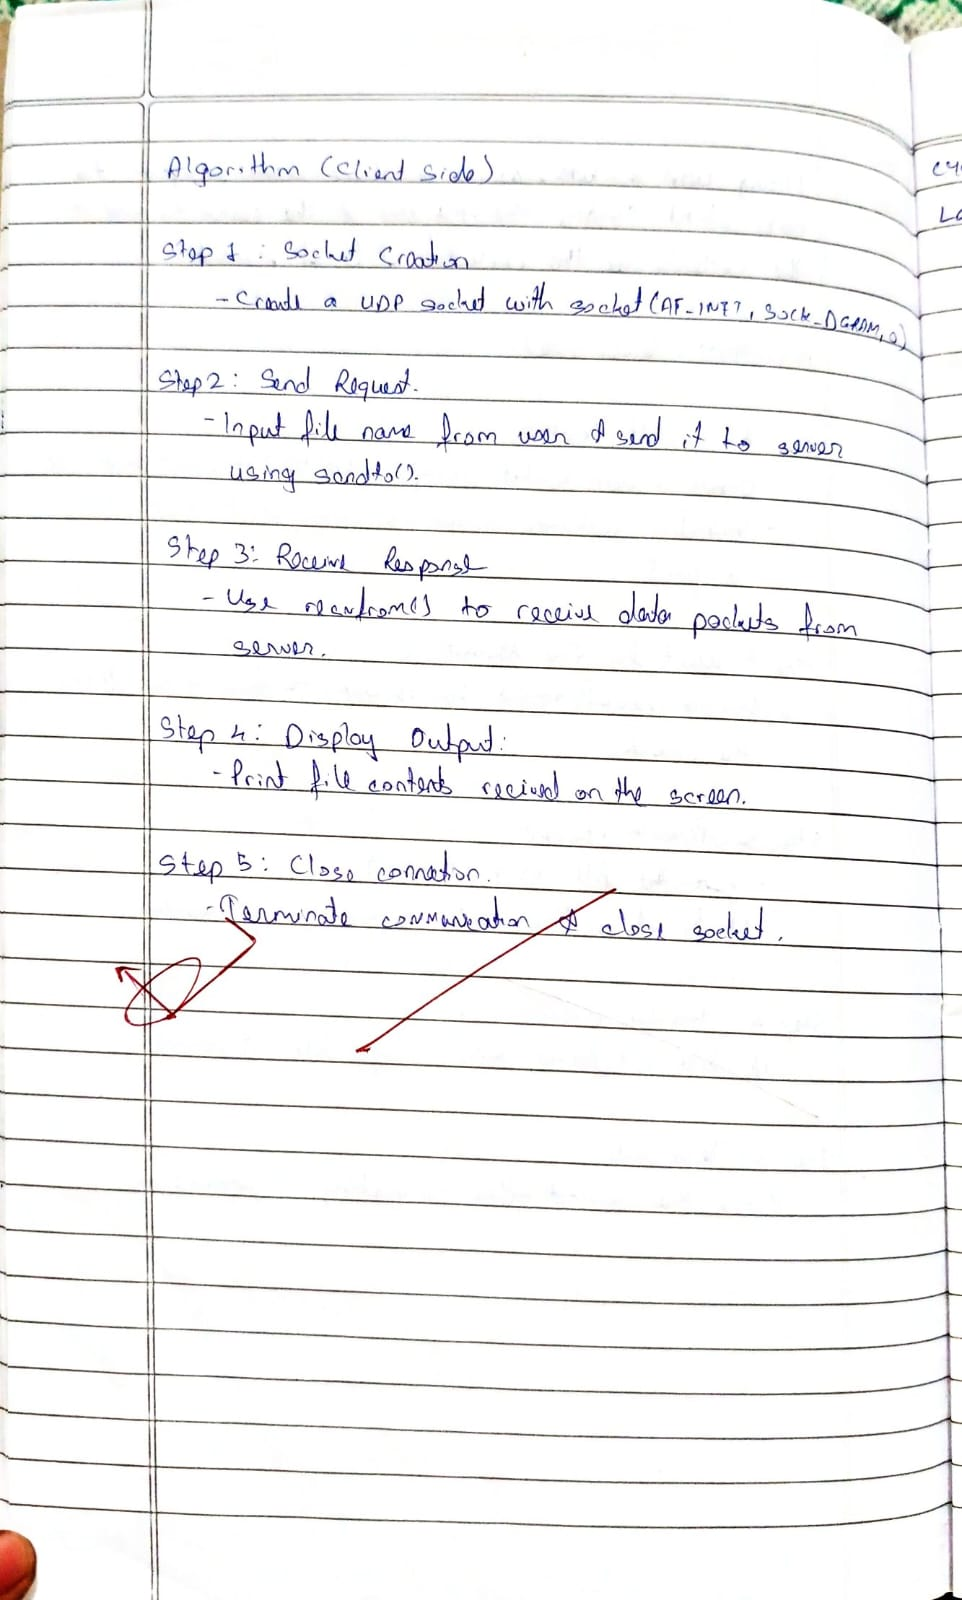 Algorithm (Client Side)
Step 1 : Socket Creation
- Create a UDP socket with socket (AF_INET, SOCK_DGRAM, 0)
Step 2 : Send Request.
- Input file name from user & send it to server
using sendto().
Step 3: Receive Response
- Use recvfrom() to receive data packets from
server.
Step 4: Display Output:
- Print file contents recived on the screen.
Step 5: Close connection.
- Terminate communication & close socket.